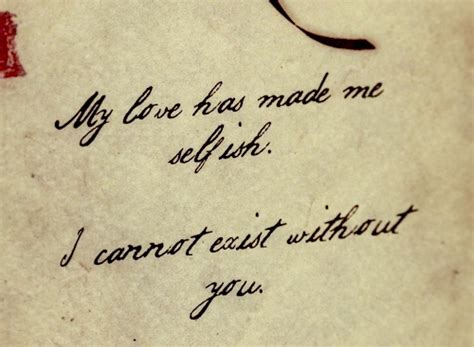 My love has made me
selfish.
I cannot exist without
you.